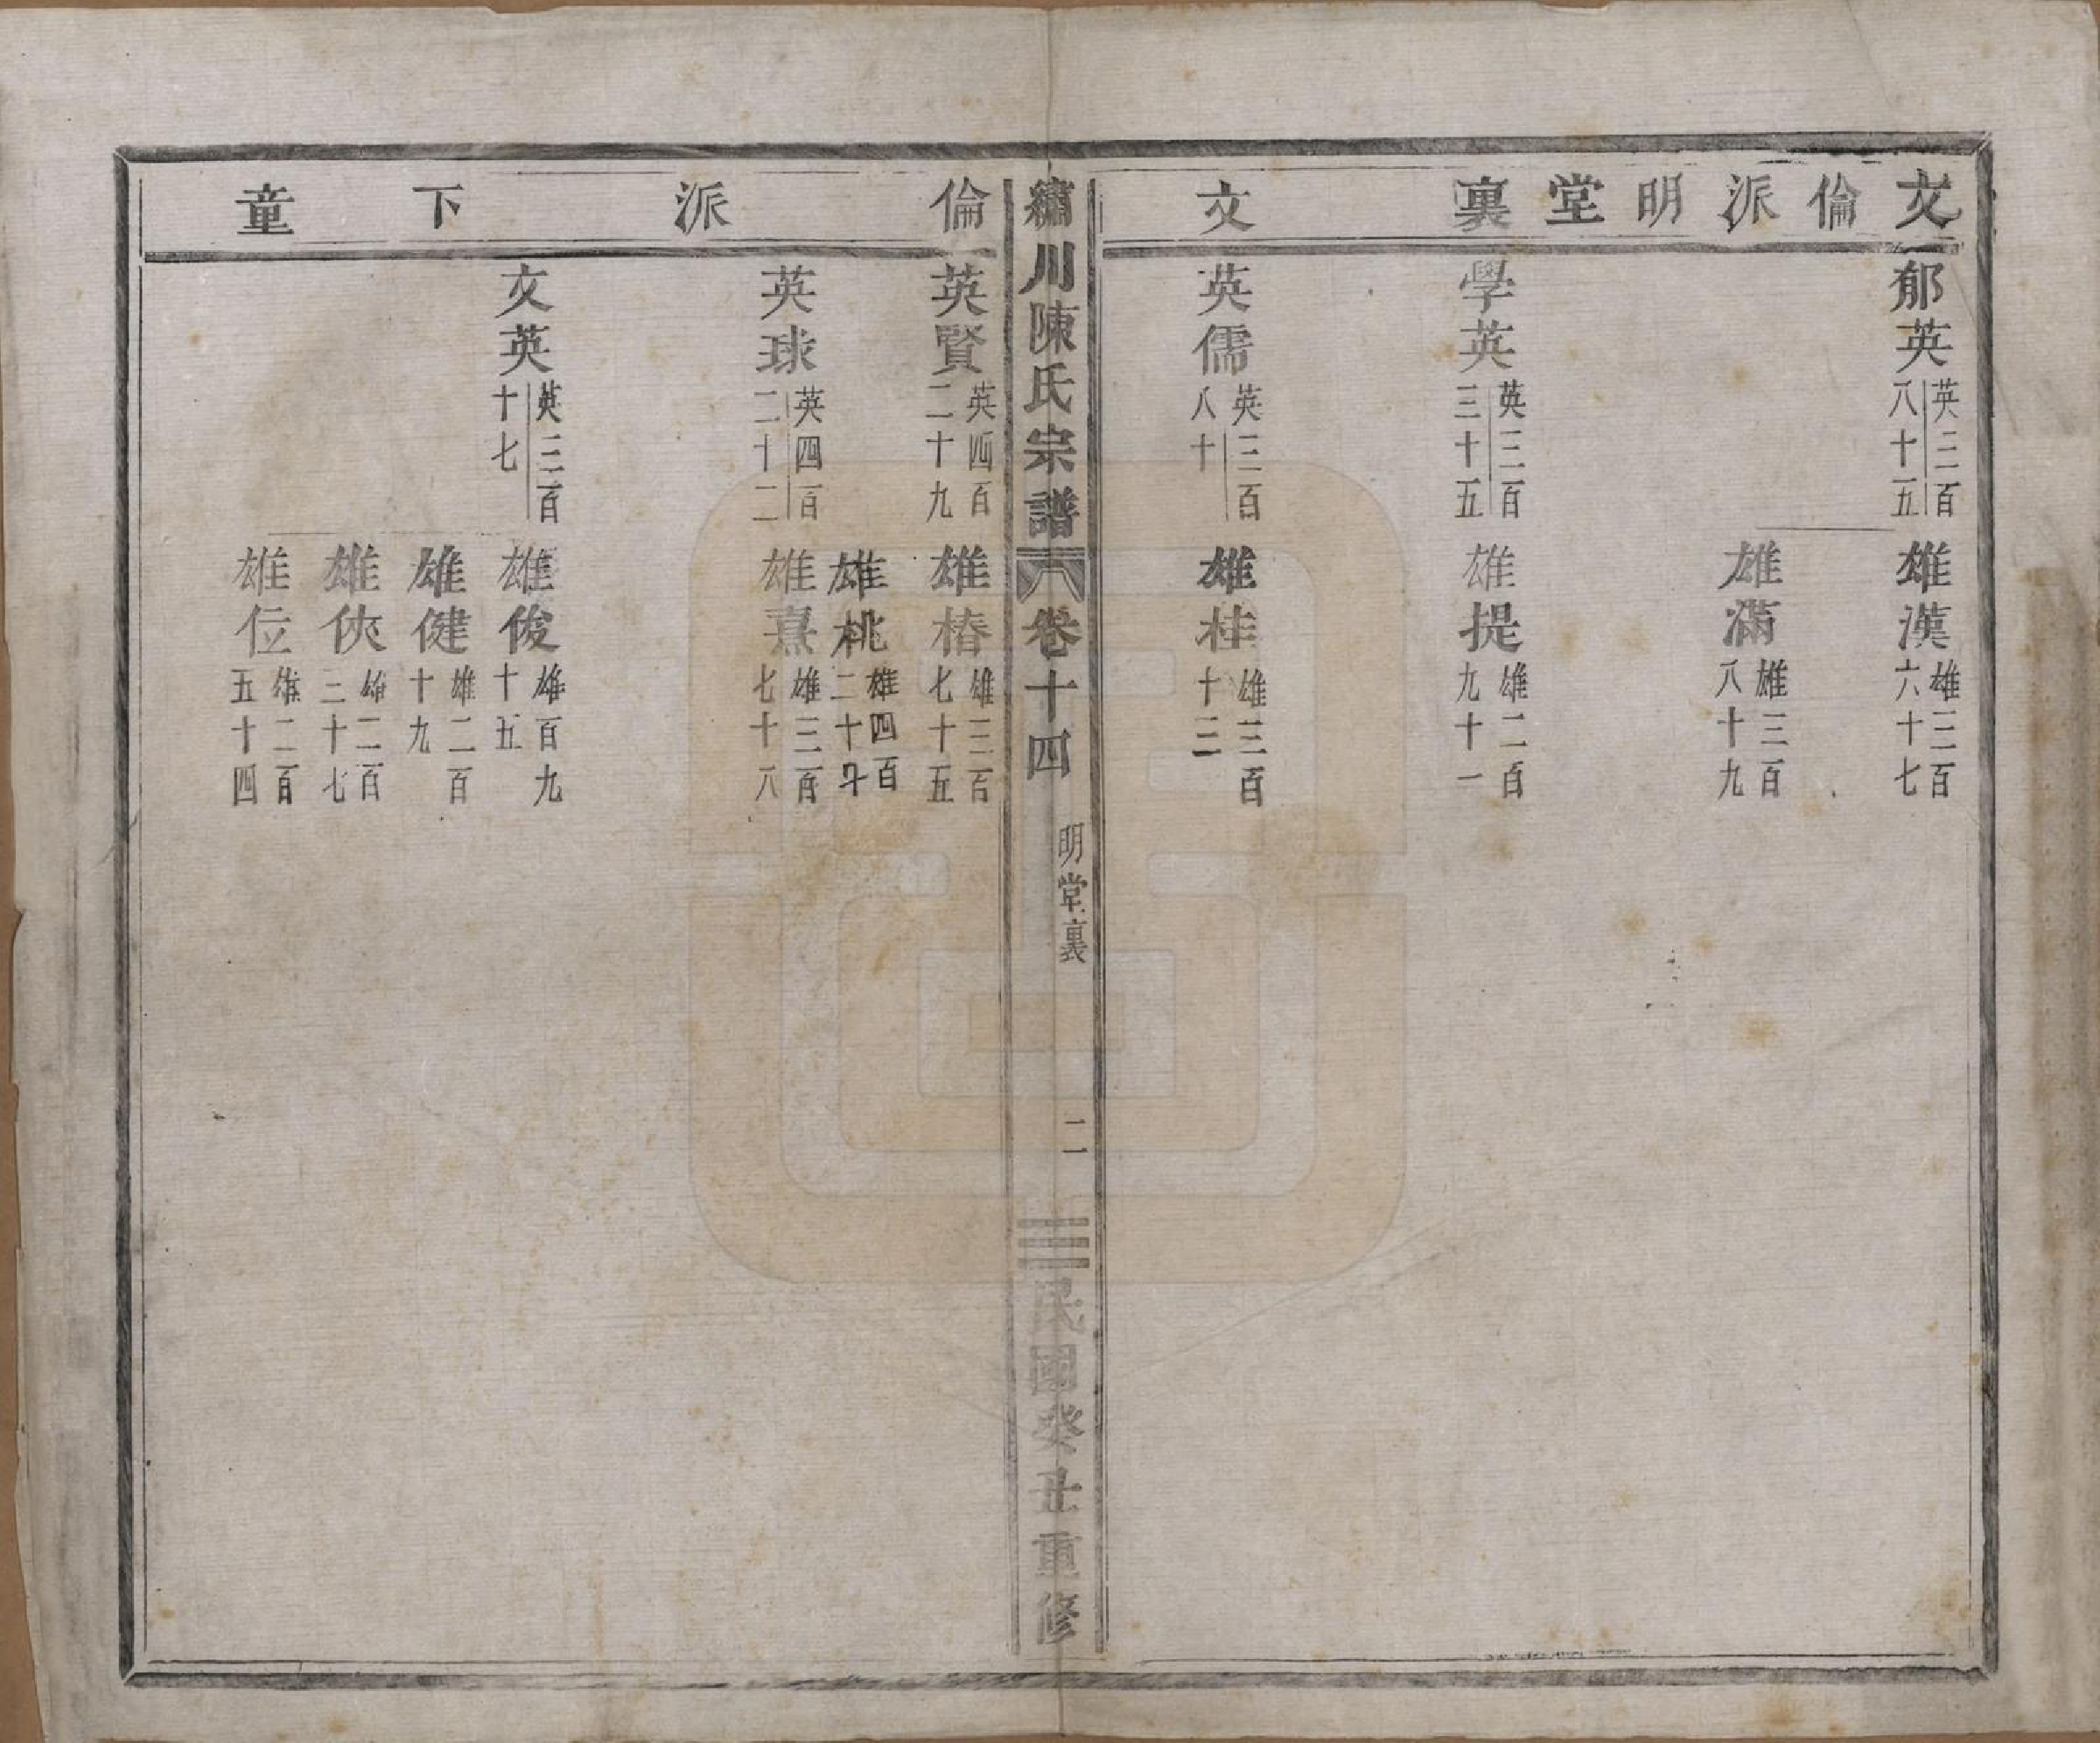 文倫派明堂裏
郁英 英三百八十五
雄漢 雄三百六十七
雄滿 雄三百八十九
學英 英三百三十五
雄提 雄二百九十一
文
英儒 英三百八十
雄桂 雄三百十三
繡川陳氏宗譜 卷十四 明堂裏 二 民國癸丑重修
倫派下童
英賢 英四百二十九
雄椿 雄三百七十五
雄桃 雄四百二十
英球 英四百二十二
雄熹 雄三百七十八
文英 英三百十七
雄俊 雄百九十五
雄健 雄二百十九
雄俠 雄二百三十七
雄位 雄二百五十四